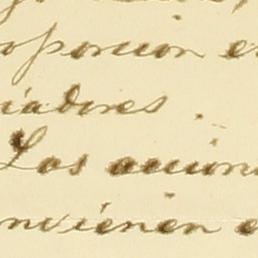 oporcion e
iadores.
Los accion
nvienen e